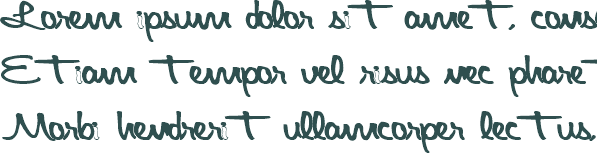 Lorem ipsum dolor sit amet, cons
Etiam tempor vel risus nec pharet
Morbi hendrerit ullamcorper lectus.